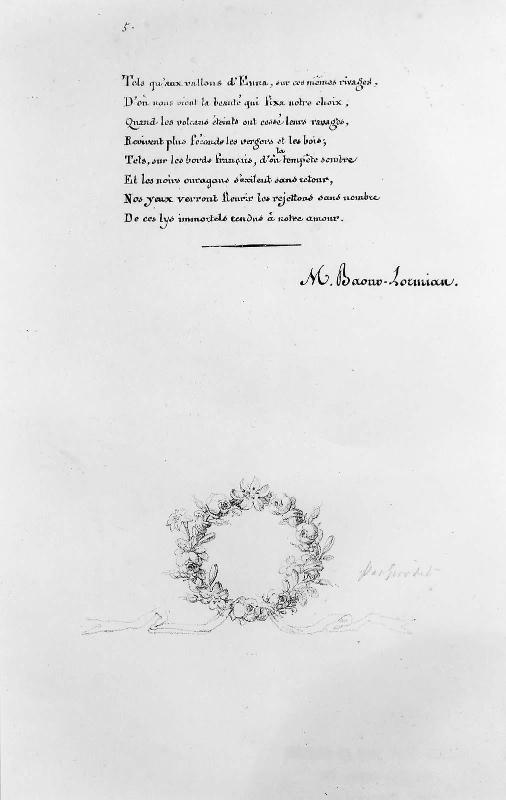 5.
Tels qu'aux vallons d'Enna, sur ces mêmes rivages,
D'où nous vient la beauté qui fixa notre choix,
Quand les volcans éteints ont cessé leurs ravages,
Revivent plus féconds les vergers et les bois;
Tels, sur les bords français, d'où la tempête sombre
Et les noirs ouragans s'exilent sans retour,
Nos yeux verront fleurir les rejettons sans nombre
De ces lys immortels rendus à notre amour.
M. Baour-Lormian.
par Girodet